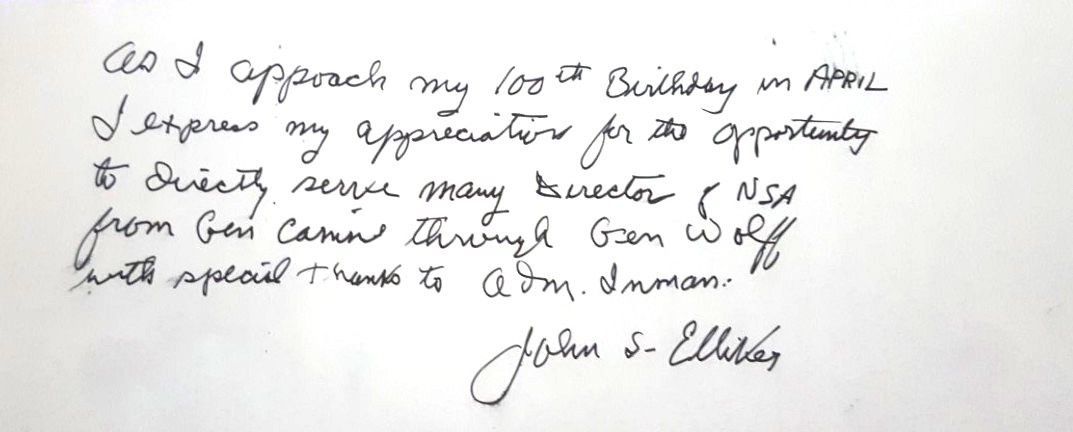 As I appoach my 100th Birthday in APRIL
I express my appreciation for the opportunity
to directly serve many Director of NSA
from Gen Canine through Gen Wolff
with special thanks to Adm. Inman.
John S- Elliker